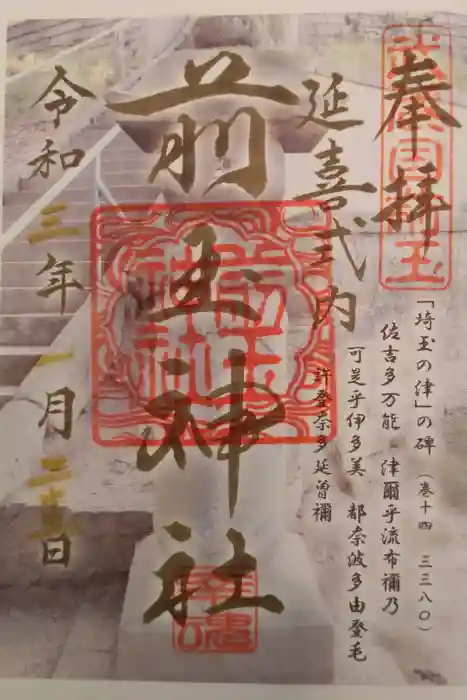 奉拝
延喜式内
「埼玉の津」の碑（巻十四 三三八〇）
佐吉多万能 津爾乎流布禰乃
可是乎伊多美 都奈波多由登毛
許登奈多延曽禰
前玉神社
前玉神社
幸魂
令和三年一月 日